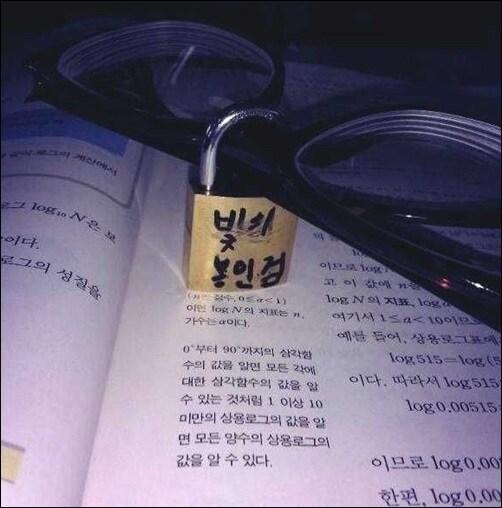 빛의
봉인검
같이 로그의 계산에서
log₁₀ N은
이다.
로그의 성질을
(n은 정수, 0≤a<1)
이면 log N의 지표는 n,
가수는 a이다.
0°부터 90°까지의 삼각함
수의 값을 알면 모든 각에
대한 삼각함수의 값을 알
수 있는 것처럼 1 이상 10
미만의 상용로그의 값을 알
면 모든 양수의 상용로그의
값을 알 수 있다.
이므로 log
고 이 값에 n을
log N의 지표, log a
여기서 1≤a<10이므로
예를 들어, 상용로그표에
log515=log(5
이다. 따라서 log515
log0.00515=
이므로 log0.00
한편, log0.00